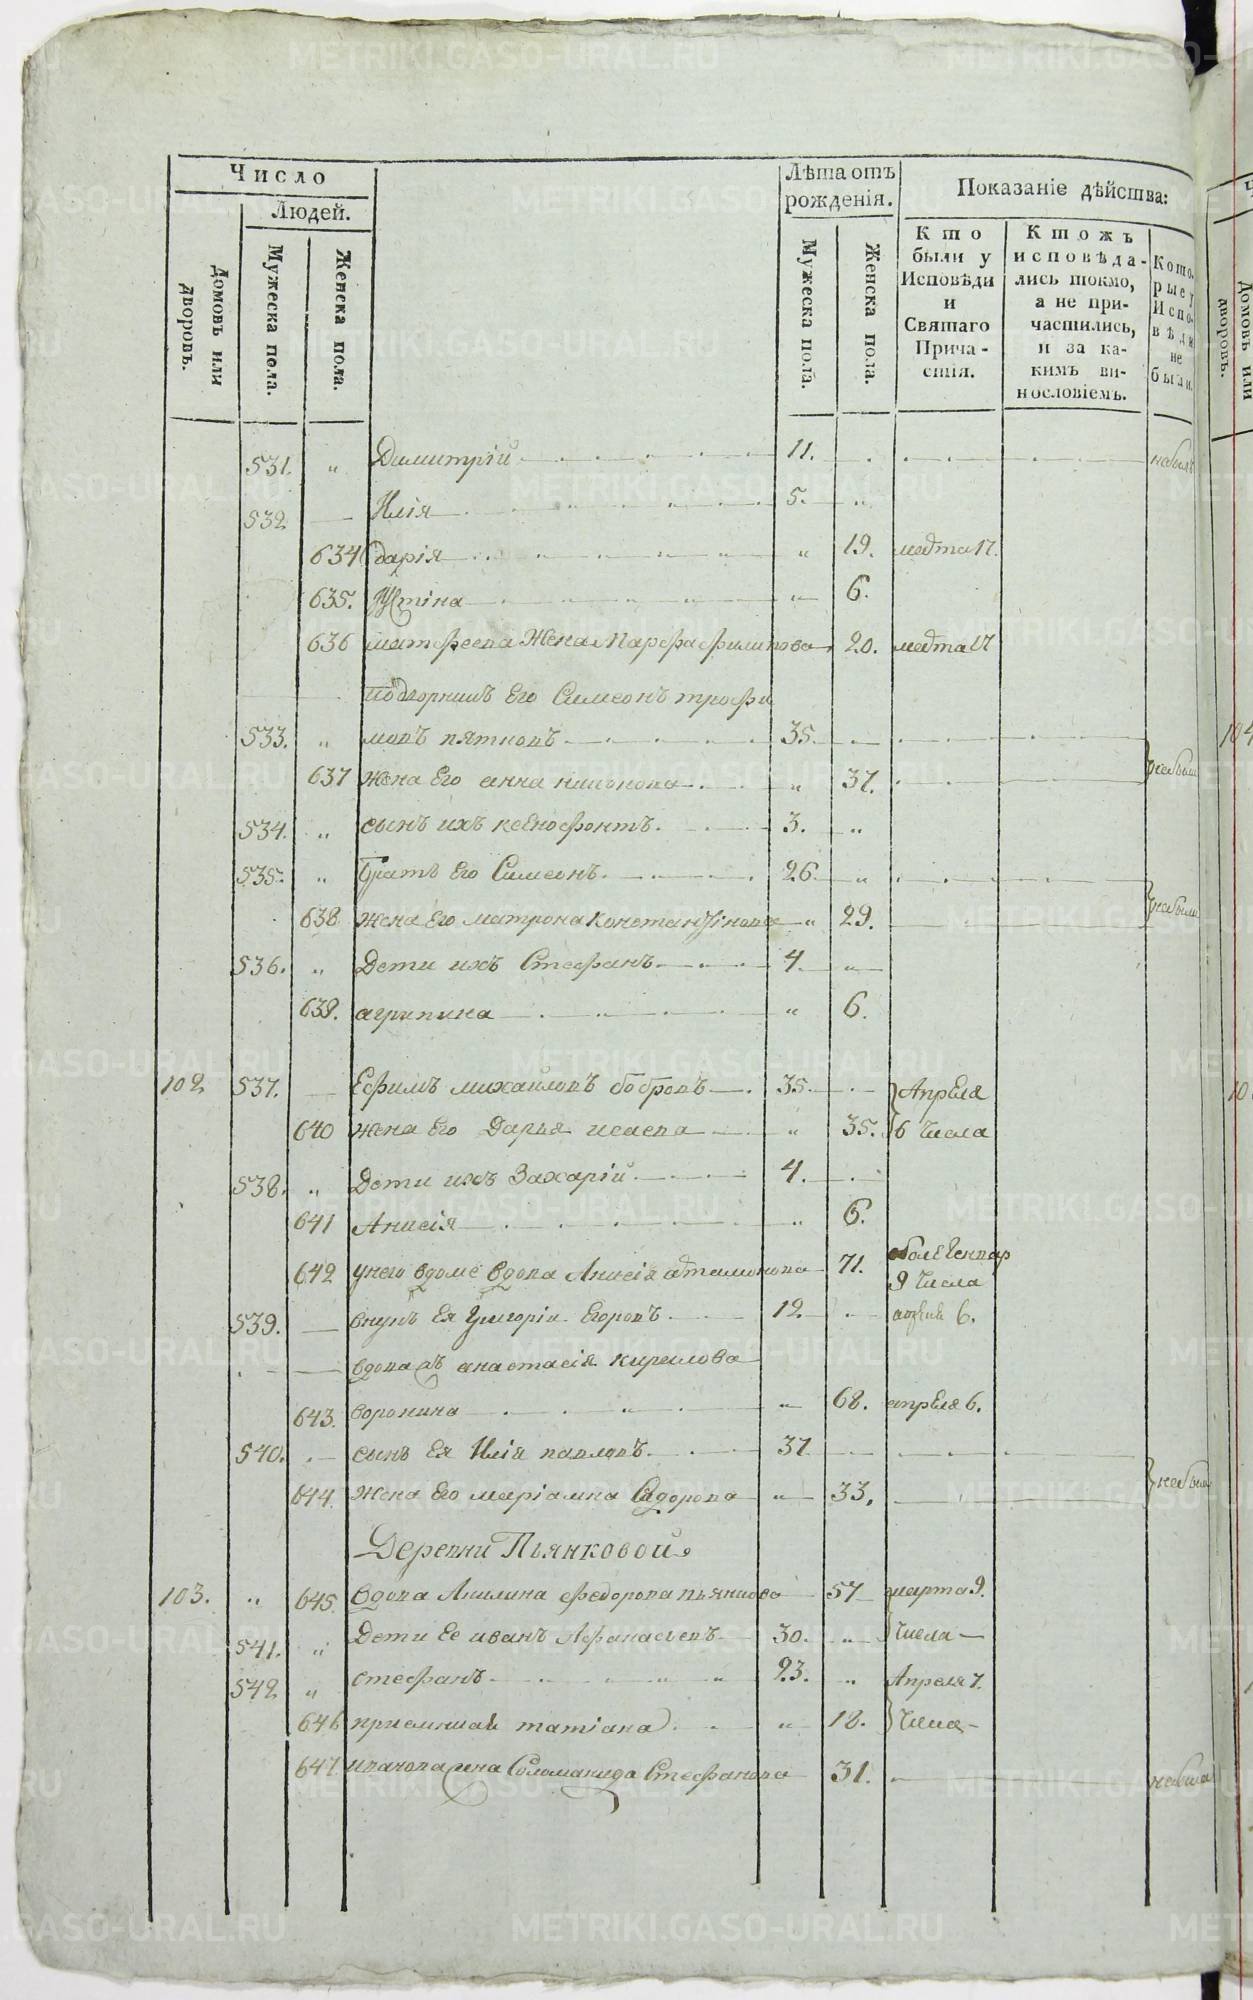 METRIKI.GASO-URAL.RU
Число
Домовъ или дворовъ.
Людей.
Мужеска пола.
Женска пола.
Лѣта отъ рожденія.
Мужеска пола.
Женска пола.
Показаніе дѣйства:
Кто были у Исповѣди и Святаго Причастія.
Ктожъ исповѣдались токмо, а не причастились, и за какимъ винословіемъ.
Которые у Исповѣди не были.
531. „ Димитрій 11. небылъ
532 Илія 5. „
634 дарія „ 19. марта 17.
635. Устіна „ 6.
636 матфеева Жена Марфа филипова 20. марта 17
подворникъ Его Симеонъ трофи
533. „ мовъ пятковъ 35. небыли
637 жена Его анна никонова „ 37.
534. „ сынъ ихъ ксенофонтъ. 3. „
535. „ братъ Его Симеонъ. 26. „
638 жена Его матрона константінова „ 29. небыли
536. „ Дети ихъ Стефанъ 4. „
639. агрипина „ 6.
102 537. Ефимъ михаиловъ бобровъ 35. Апреля
640 жена Его Дарья исаева „ 35. 6 числа
538. „ Дети ихъ Захарій 4.
641 Анисія „ 6.
642 унего вдоме вдова Анисія атамонова 71.
9 числа
539. внукъ Ея Григории Егоровъ. 12. апреля 6.
вдова анастасія кирилова
643. воронина „ 68. апреля 6.
540. сынъ Ея Илія павловъ 37
644. жена Его маріамна Сидорова „ 33. небыли
Деревни Пьянковой
103. „ 645. вдова Акилина федорова пьянкова 57 марта 9.
541. „ Дети Ее иванъ Афанасьевъ 30. „ числа
542 „ стефанъ 23. „ Апреля 7.
646 приемная татіана „ 18. числа
647 иванова жена Соломанида Стефанова 31. небыла
104
Домовъ или дворовъ.